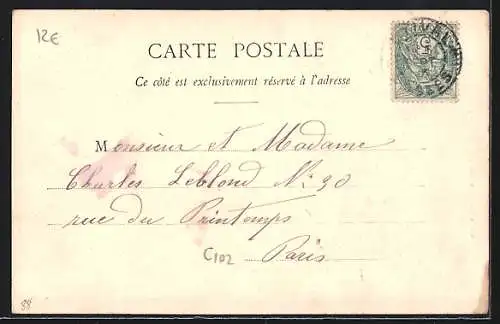 12€
CARTE POSTALE
Ce côté est exclusivement réservé à l'adresse
5
Monsieur et Madame
Charles Leblond No 30
rue du Printemps
C102
Paris